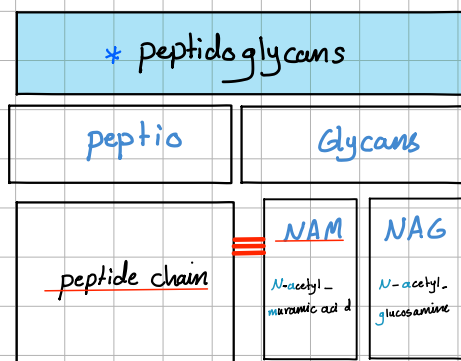 * peptidoglycans
peptio
Glycans
peptide chain
NAM
N-acetyl-
muramic acid
NAG
N-acetyl-
glucosamine